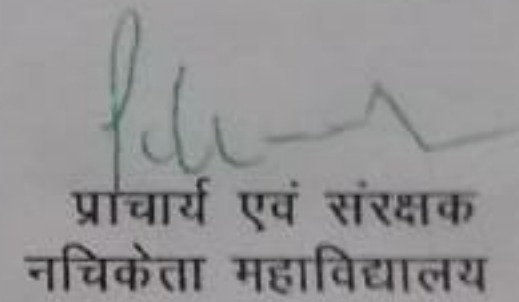 प्राचार्य एवं संरक्षक
नचिकेता महाविद्यालय